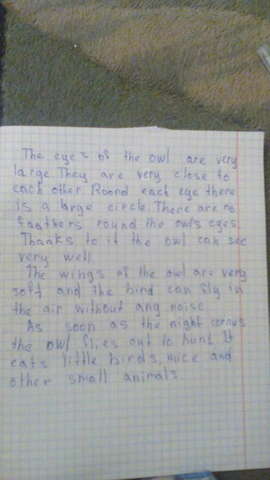 The eyes of the owl are very
large. They are very close to
each other. Roond each eye there
is a large circle. There are no
feathers round the owl's eyes
Thanks to it the owl can see
very well.
The wings of the owl are very
soft and the bird can fly in
the air without any noise
As soon as the night comes
the owl flies out to hunt It
eats little birds, mice and
other small animals